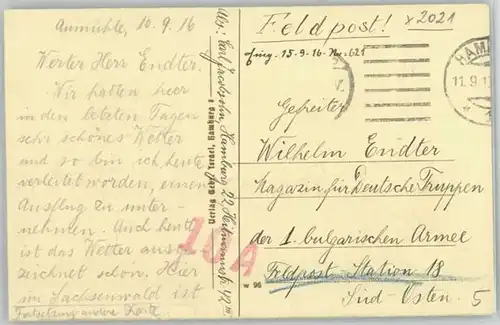 Aumühle, 10.9.16
Werter Herr Endter.
Wir hatten hier
in den letzten Tagen
sehr schönes Wetter
und so bin ich heute
verleitet worden, einen
Ausflug zu unter-
nehmen. Auch heute
ist das Wetter ausge-
zeichnet schön. Hier
im Sachsenwald ist
Fortsetzung andre Karte
Abs: Carl Jacobsohn, Hamburg 22,
Verlag Gebr. Isrnel, Hamburg
Feldpost!
x2021
eing. 15.9.16. No. 621
HAM
11.9.1
V.
Gefreiter
Wilhelm Endter
Magazin für Deutsche Truppen
der 1. bulgarischen Armee
Feldpost-Station 18
Süd-Osten.
5
10A
w 96